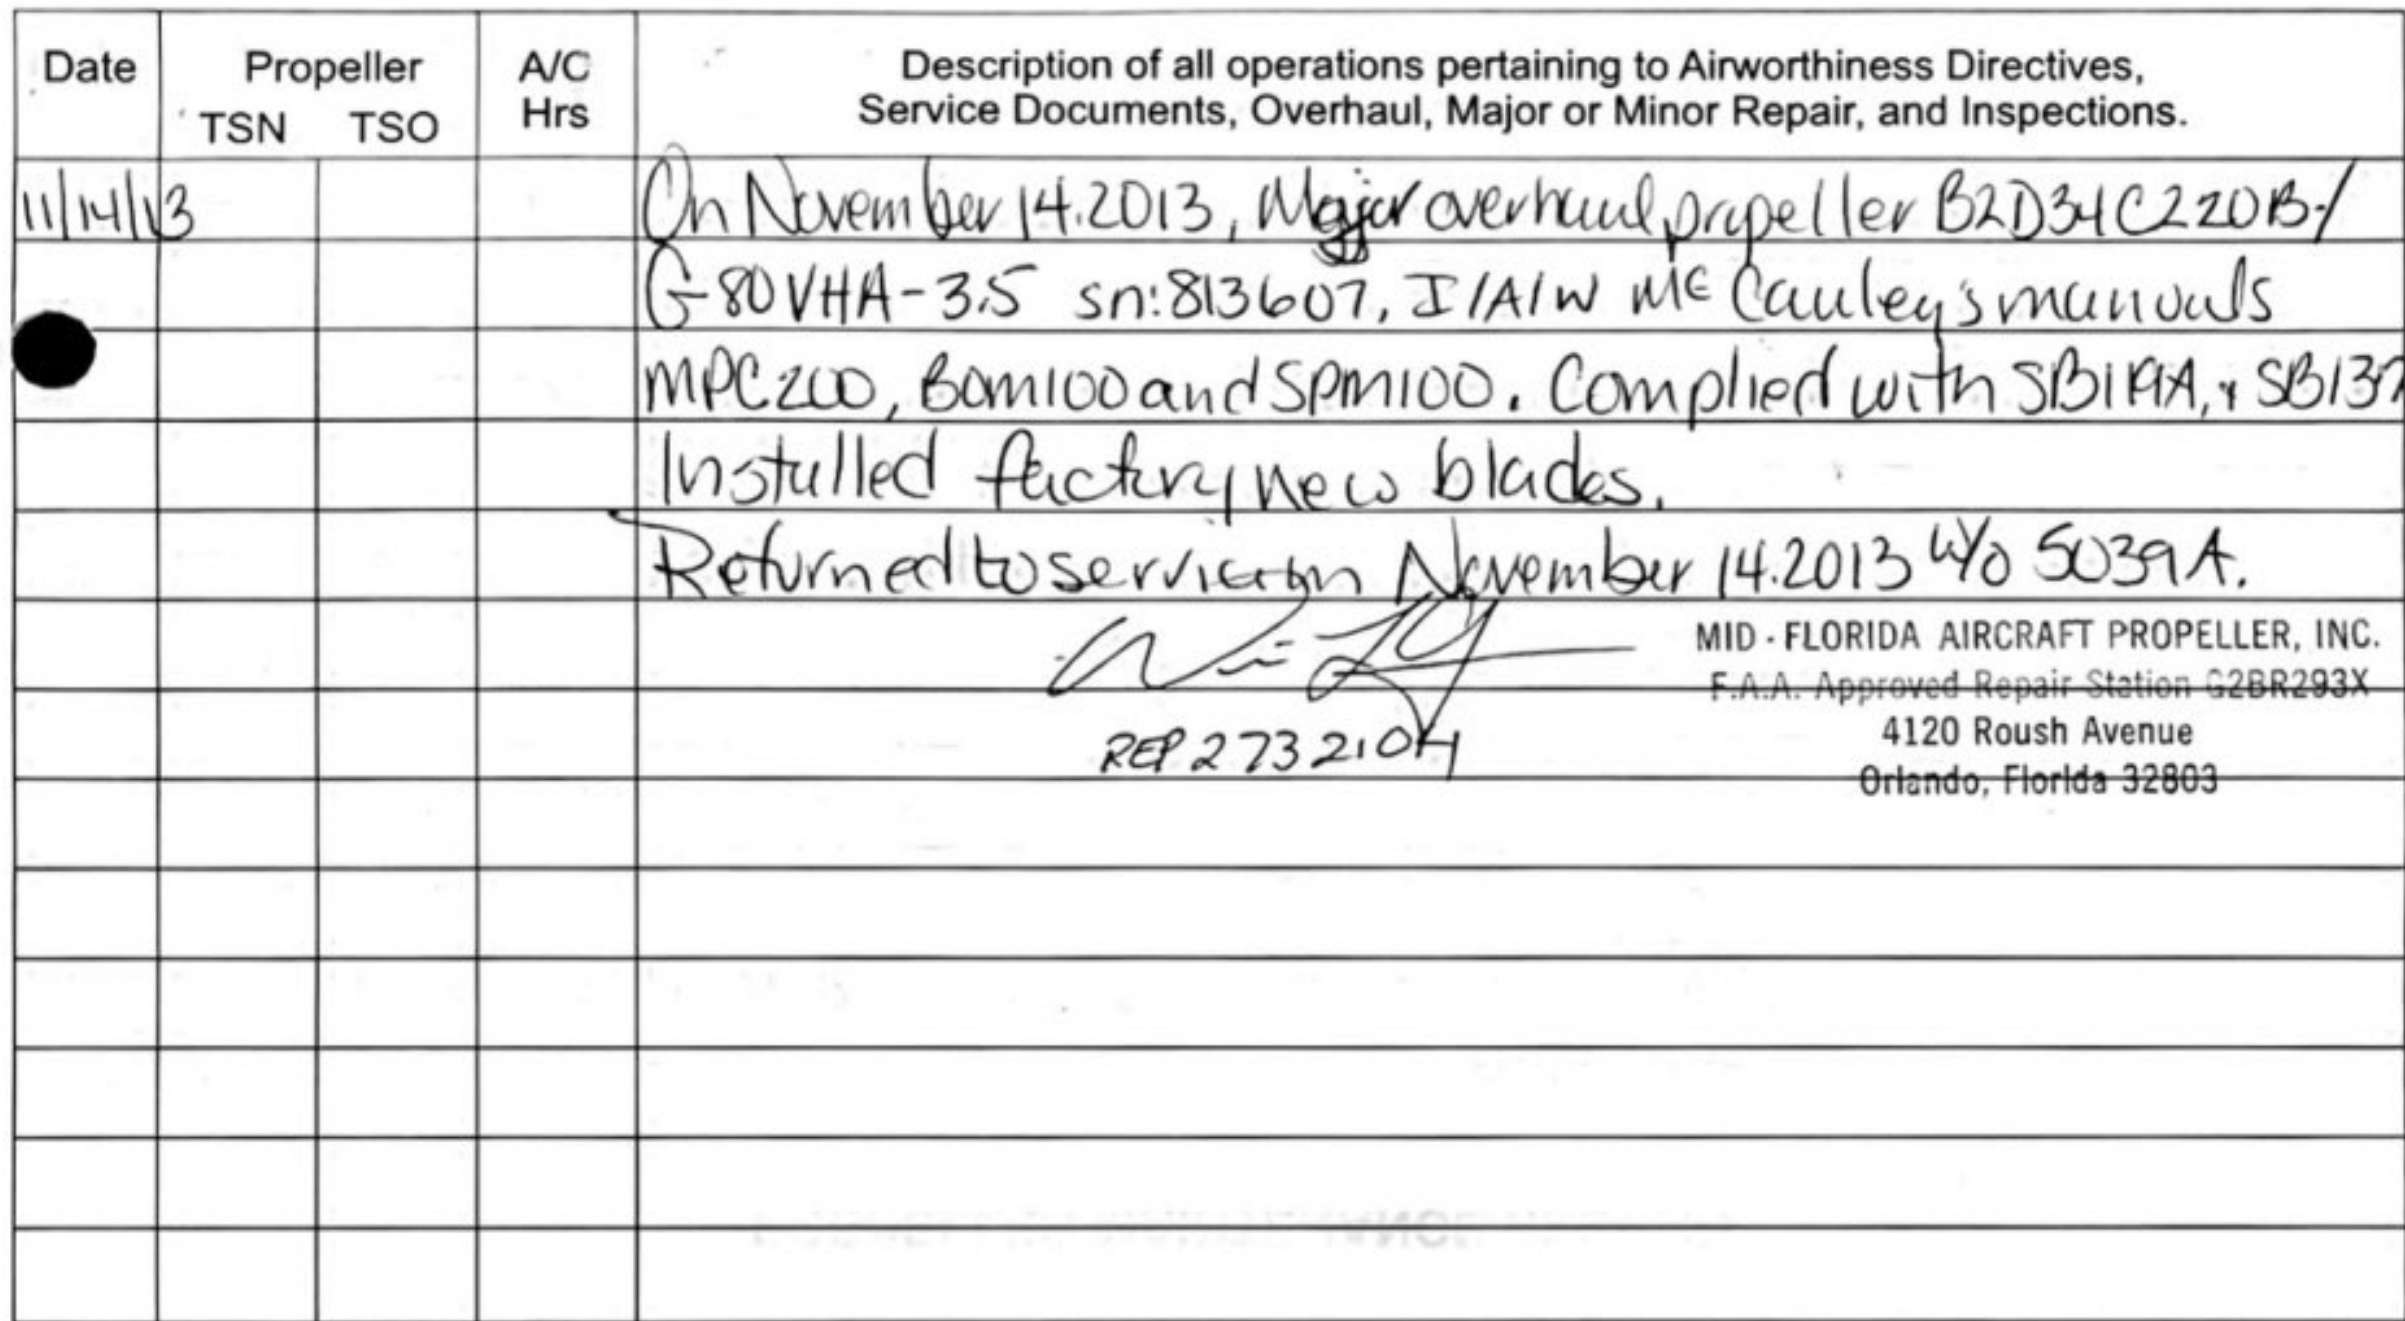 Date Propeller A/C Description of all operations pertaining to Airworthiness Directives,
TSN TSO Hrs Service Documents, Overhaul, Major or Minor Repair, and Inspections.
11/14/13 On November 14.2013, Major overhaul propeller B2D34C220B-/
G-80VHA-3.5 sn:813607, I/A/W McCauley's manuals
MPC200, BOM100 and SPM100. Complied with SB119A, & SB137
Installed factory new blades.
Returned to service on November 14.2013 W/O 5039A.
MID-FLORIDA AIRCRAFT PROPELLER, INC.
F.A.A. Approved Repair Station G2BR293X
REP 2732104 4120 Roush Avenue
Orlando, Florida 32803